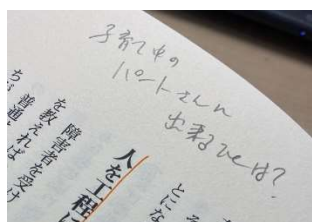 子育て中の
パートさんに
出来ることは?
とにな
人を工程
障害者を受け
を教えれば
普通
ち